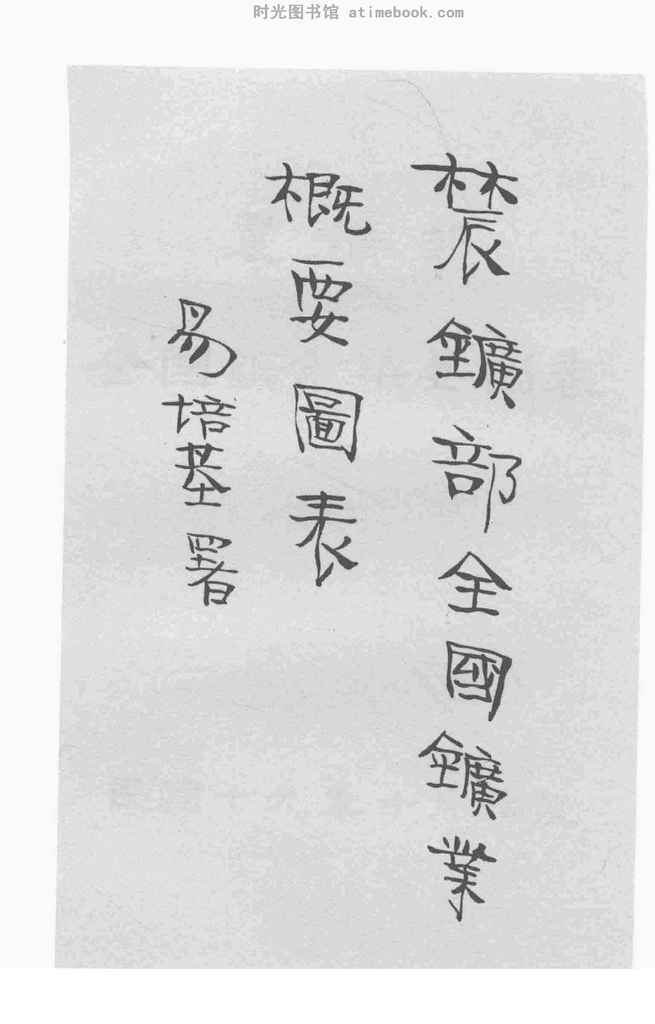 时光图书馆 atimebook.com
辳鑛部全國鑛業
概要圖表
易培基署